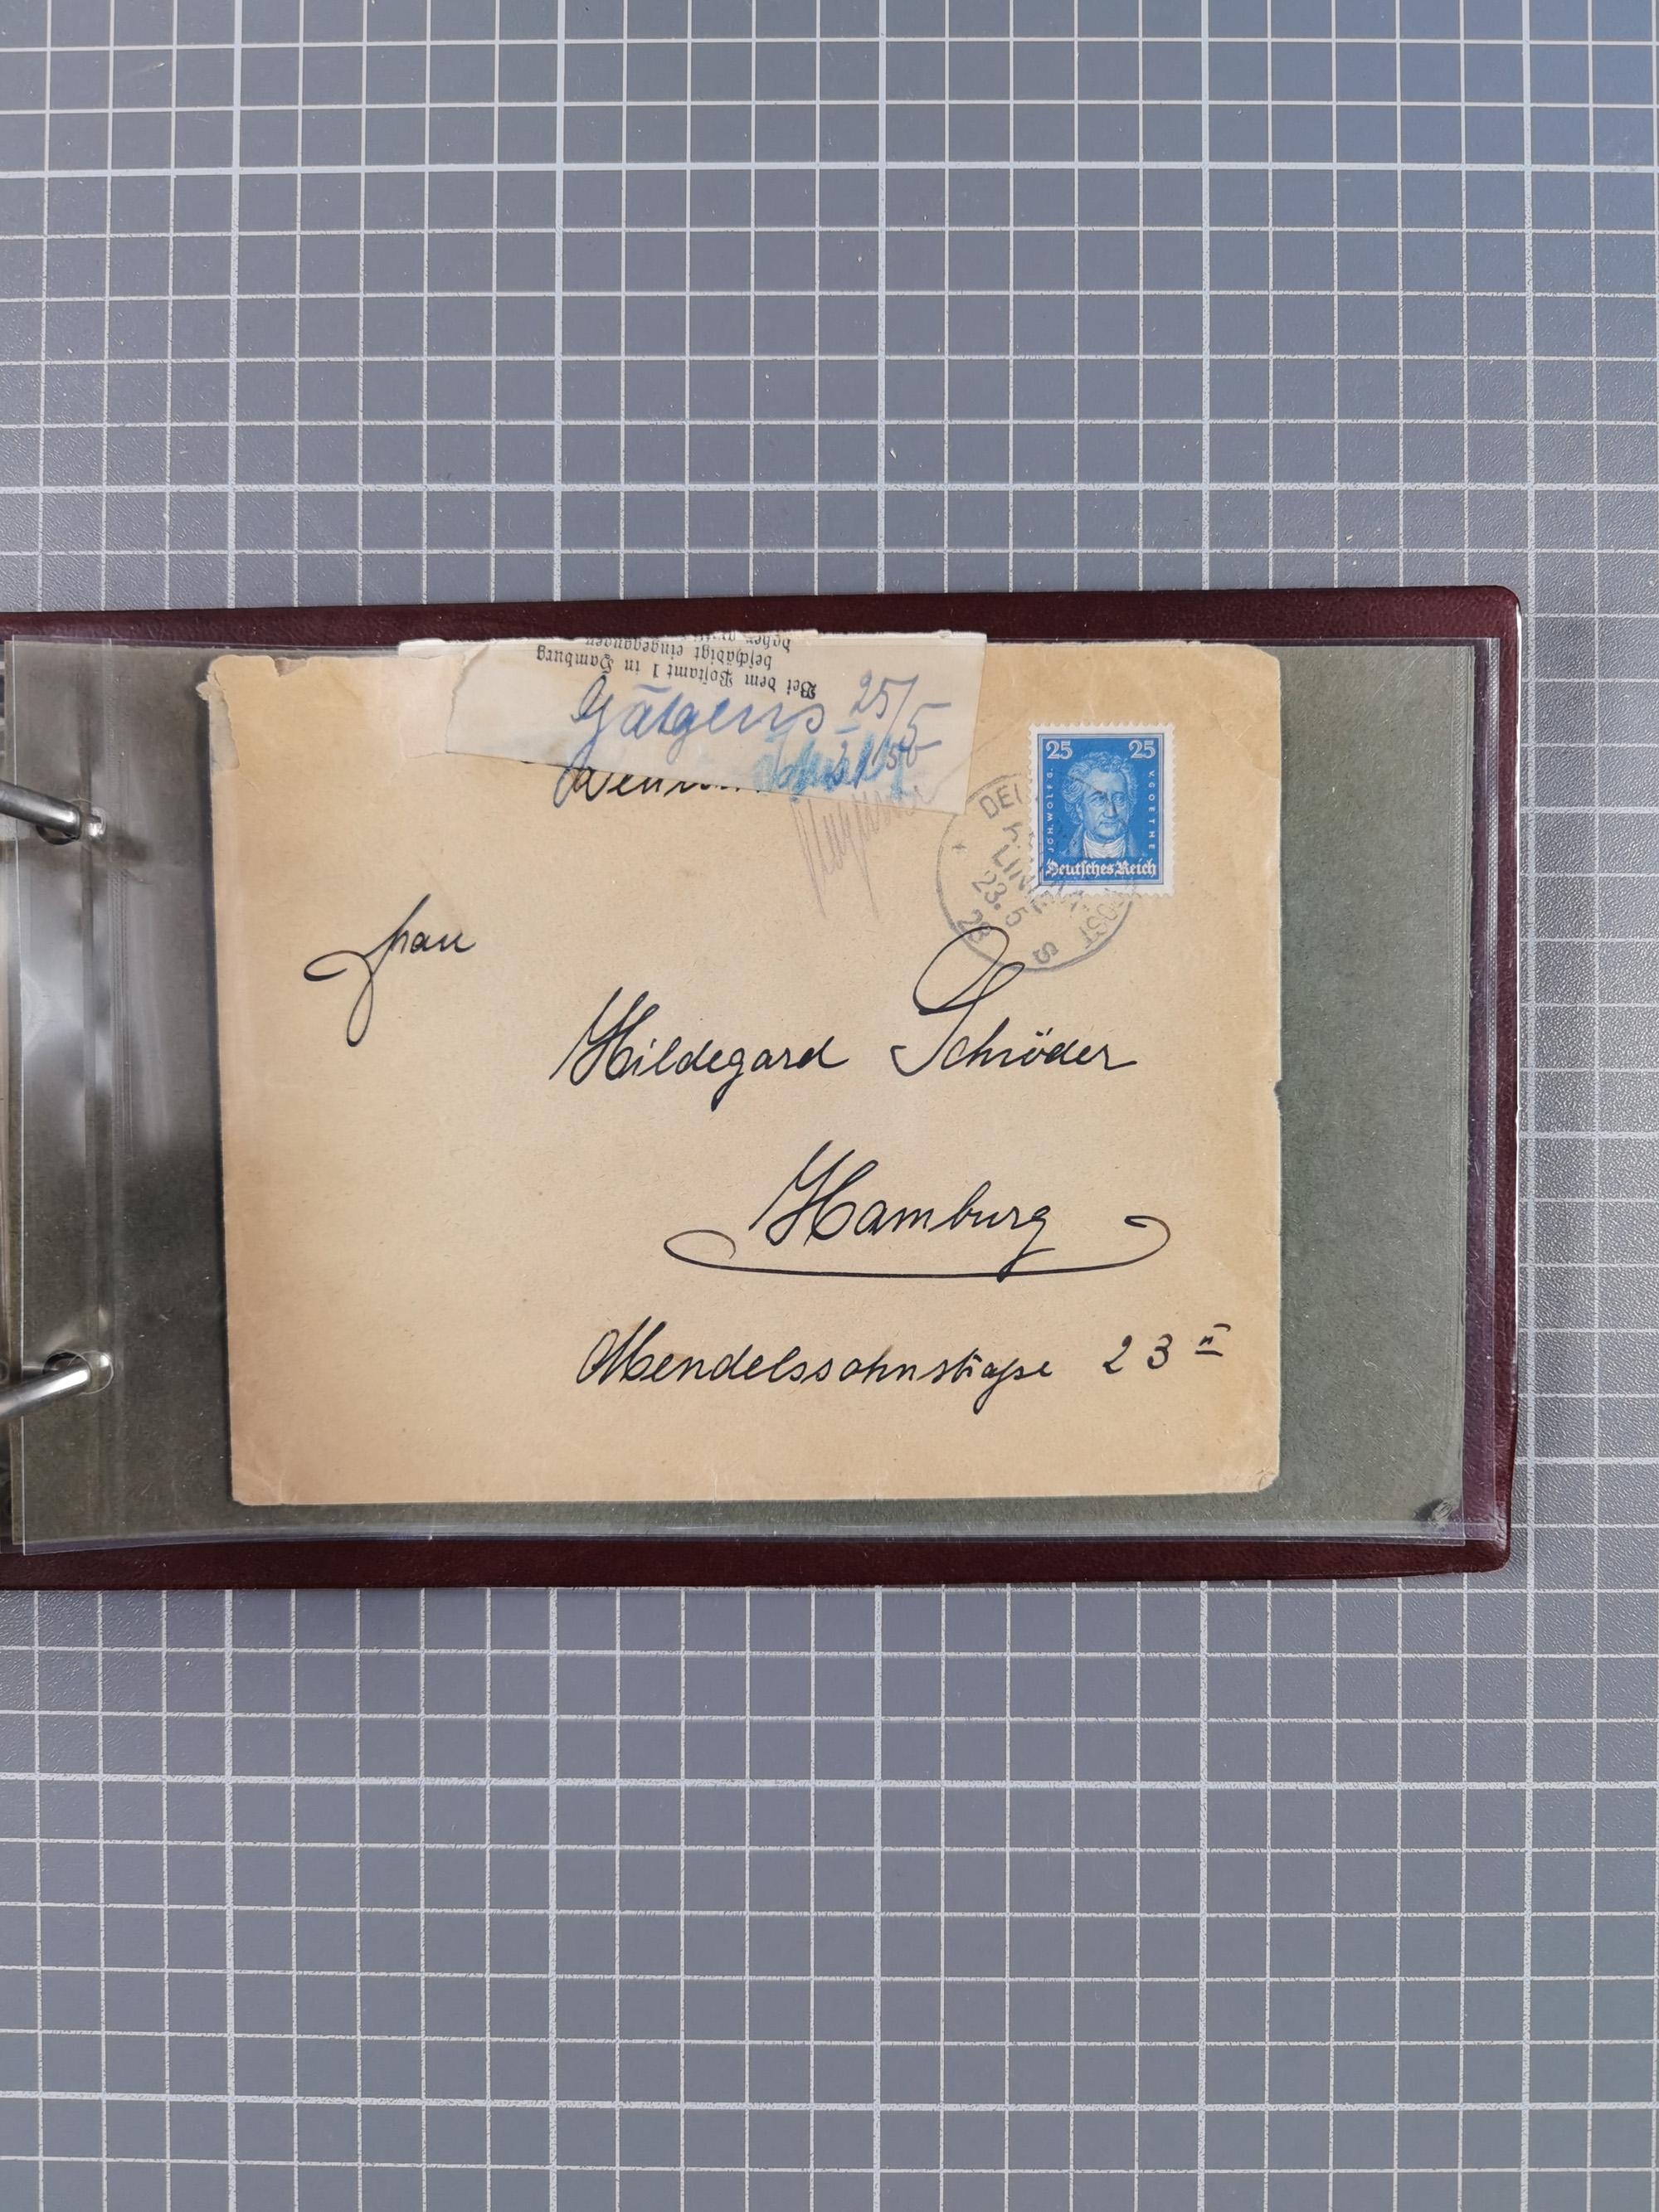 Bei dem Postamt 1 in Hamburg
beschädigt eingegangen
daher
25/5
25 25
JOH. WOLFG. V. GOETHE
Deutsches Reich
LINIE
23. 5
28
S
Frau
Hildegard Schröder
Hamburg
Mendelssohnstraße 23 II